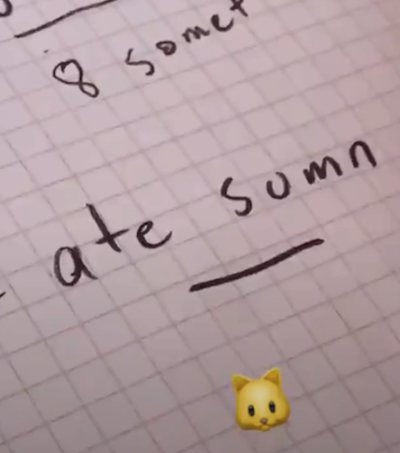 8 somet
ate sumn